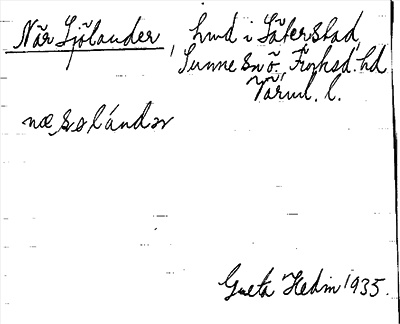 När Sjölander, hmd i Säterstad,
Sunne sn ö. Fryksd. hd
Värml. l.
næ, s​ølándər
Greta Hedin 1935.